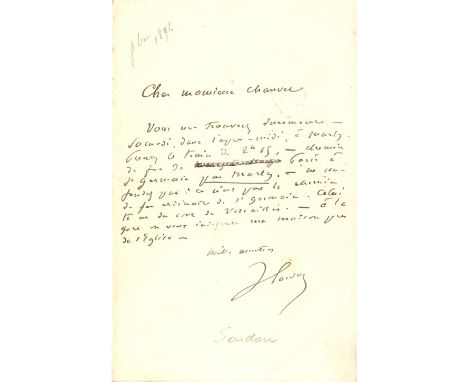 Cher monsieur Chauvel
Vous me trouverez surement —
Samedi, dans l'après-midi, à Marly.
Prenez le train de 2h 15, — chemin
de fer de Paris à
St Germain par Marly. — ne con-
fondez pas : ce n'est pas le chemin
de fer ordinaire de St Germain.
de Versailles. — à la
gare on vous indiquera ma maison près
de l'Eglise —
mille amitiés
Sardou
Sardou